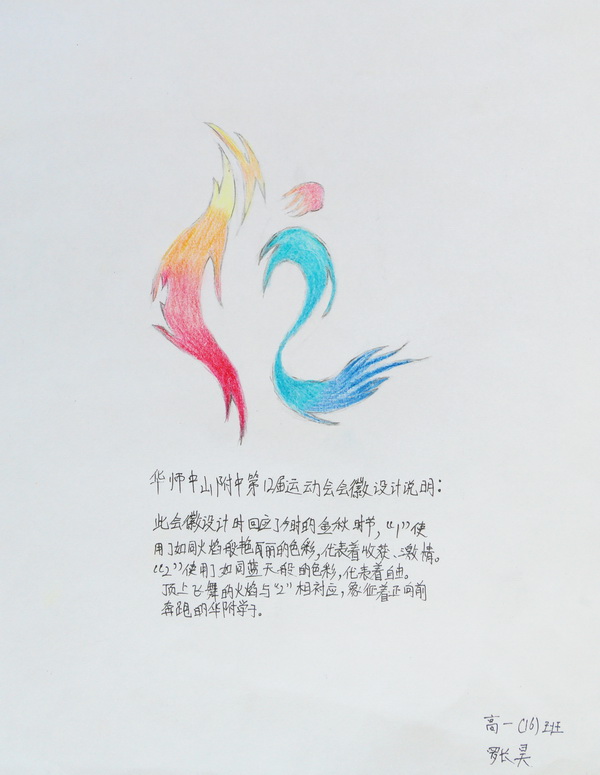 华师中山附中第12届运动会会徽设计说明：
此会徽设计时回应了时的金秋时节，“1”使
用了如同火焰般艳丽的色彩，代表着收获、激情。
“2”使用了如同蓝天般的色彩，代表着自由。
顶上飞舞的火焰与“2”相对应，象征着正向前
奔跑的华附学子。
高一(16)班
罗长昊